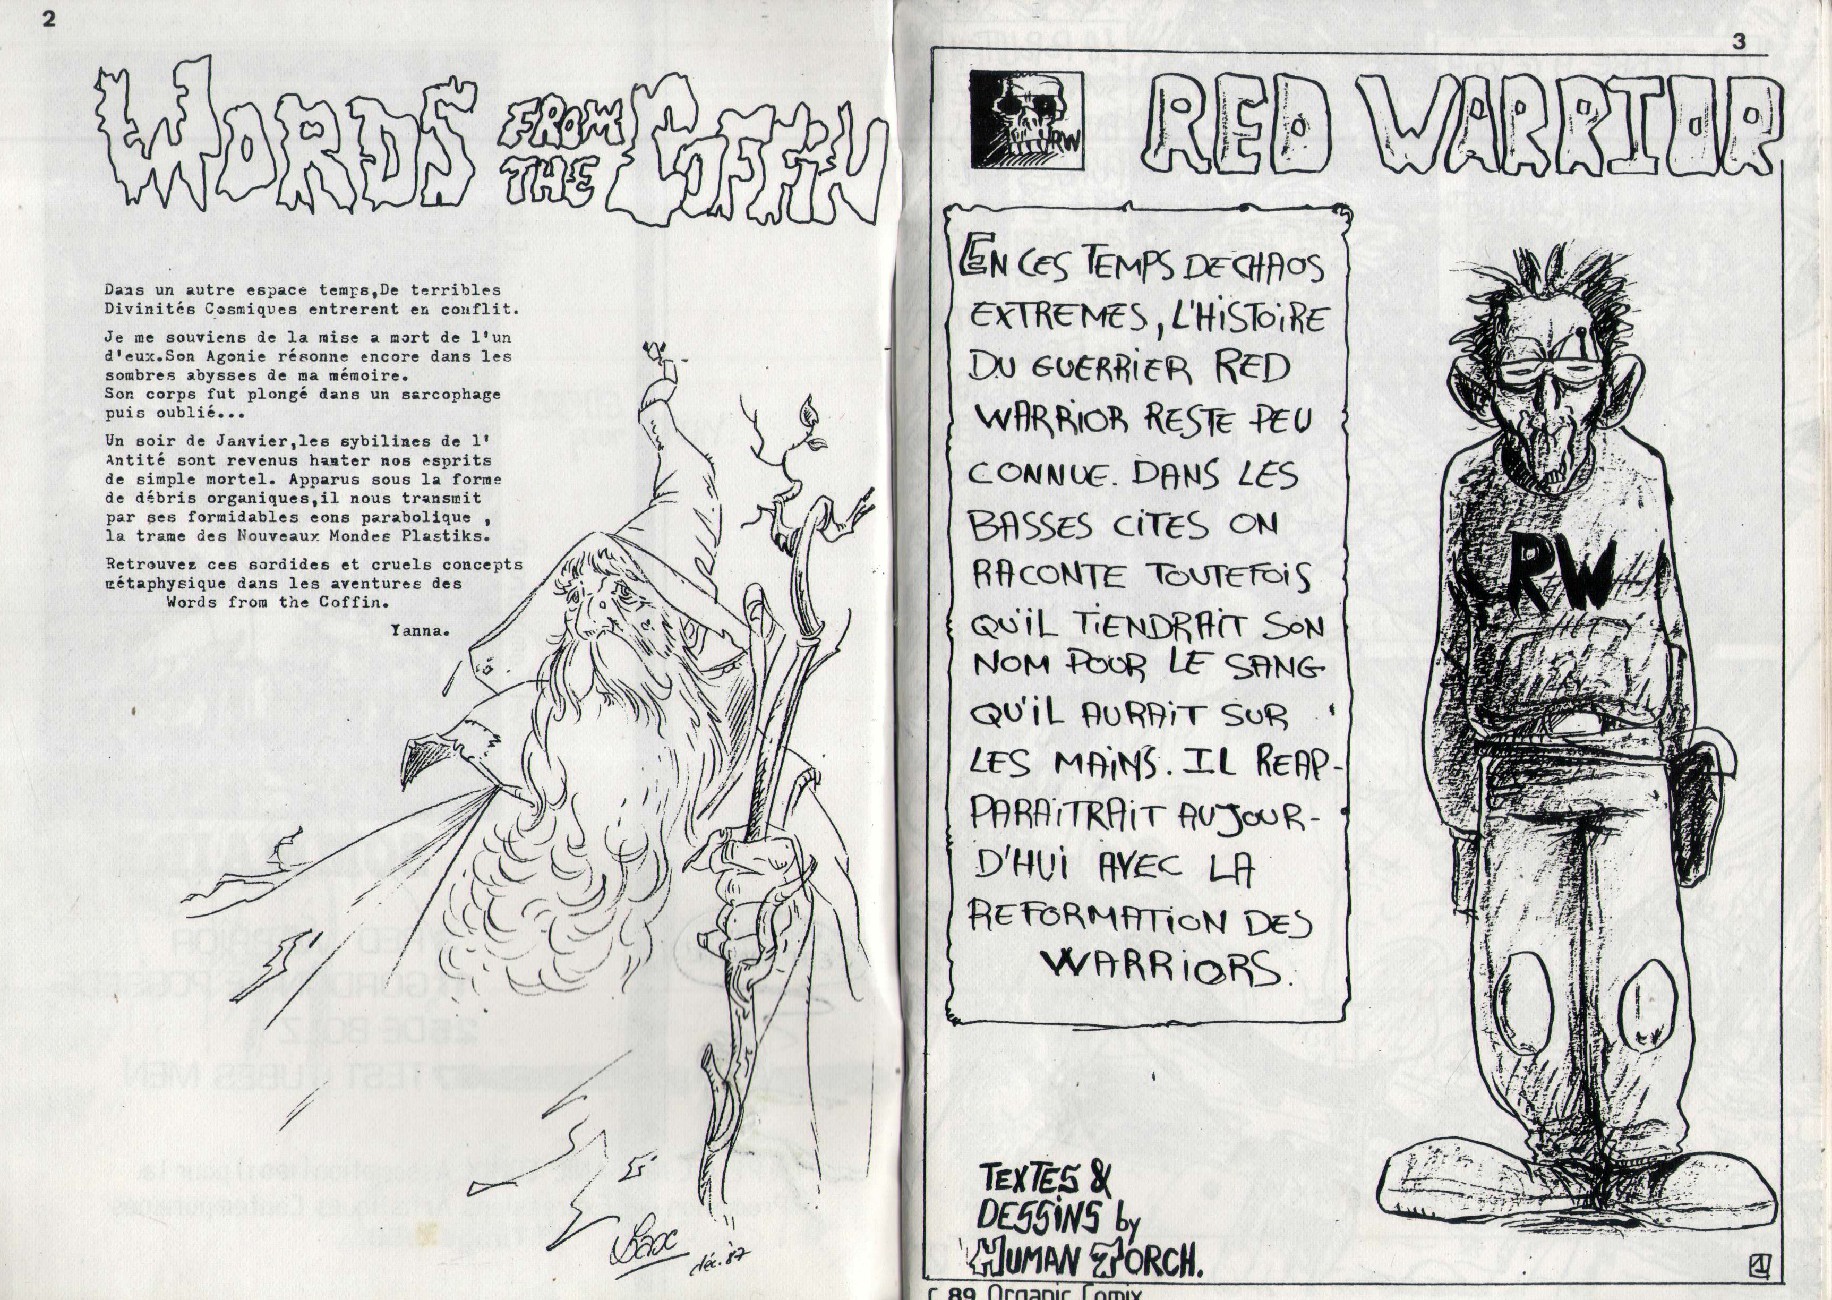 2
WORDS FROM THE COFFIN
Dans un autre espace temps,De terribles
Divinités Cosmiques entrerent en conflit.
Je me souviens de la mise a mort de l'un
d'eux.Son Agonie résonne encore dans les
sombres abysses de ma mémoire.
Son corps fut plongé dans un sarcophage
puis oublié...
Un soir de Janvier,les sybilines de l'
Antité sont revenus hanter nos esprits
de simple mortel. Apparus sous la forme
de débris organiques,il nous transmit
par ses formidables eons parabolique ,
la trame des Nouveaux Mondes Plastiks.
Retrouvez ces sordides et cruels concepts
métaphysique dans les aventures des
Words from the Coffin.
Yanna.
déc. 87
3
RW
RED WARRIOR
EN CES TEMPS DE CHAOS
EXTREMES, L'HISTOIRE
DU GUERRIER RED
WARRIOR RESTE PEU
CONNUE. DANS LES
BASSES CITES ON
RACONTE TOUTEFOIS
QU'IL TIENDRAIT SON
NOM POUR LE SANG
QU'IL AURAIT SUR
LES MAINS. IL REAP-
PARAITRAIT AUJOUR-
D'HUI AVEC LA
REFORMATION DES
WARRIORS.
RW
TEXTES &
DESSINS by
HUMAN TORCH.
1
C 89 Organic Comix